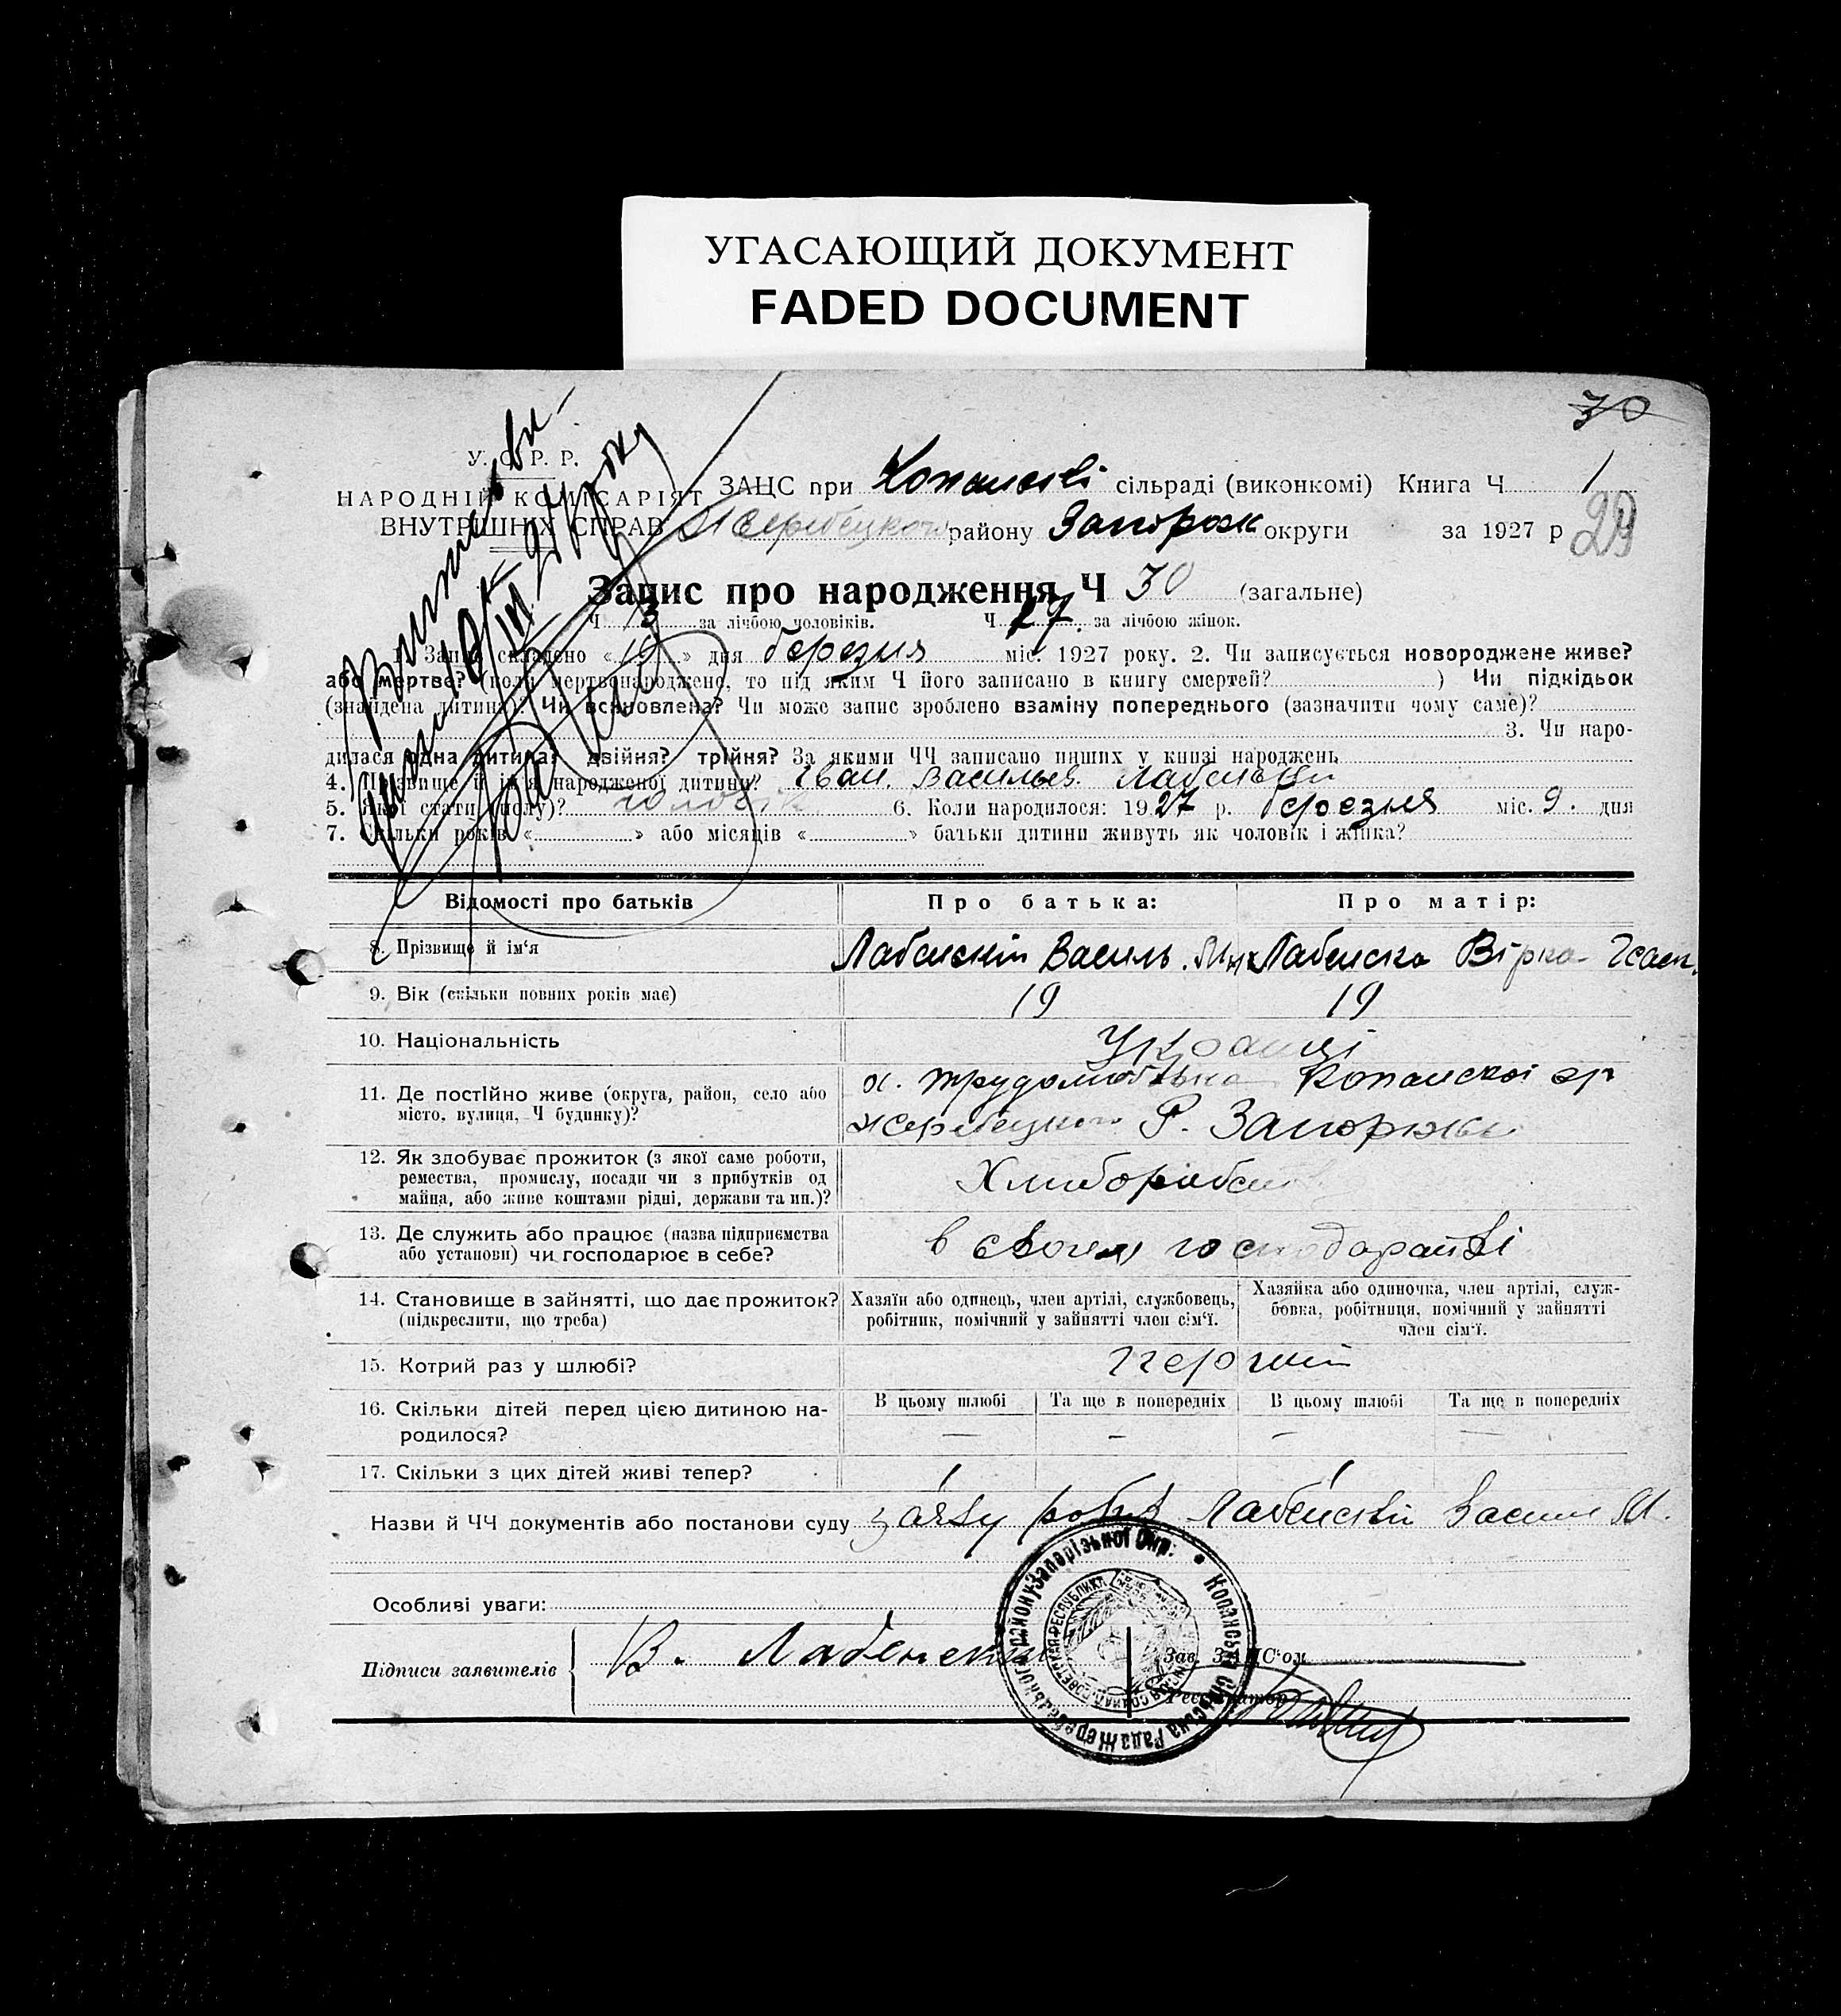 УГАСАЮЩИЙ ДОКУМЕНТ
FADED DOCUMENT
30
У. С. Р. Р.
НАРОДНІЙ КОМІСАРІЯТ
ВНУТРІШНІХ СПРАВ
ЗАЦС при Копанскі сільраді (виконкомі) Книга Ч 1
Жеребецького району Запорож округи за 1927 р 29
Запис про народження Ч 30 (загальне)
Ч 13 за лічбою чоловіків. Ч 17. за лічбою жінок.
1. Запис складено «19» дня березня міс. 1927 року. 2. Чи записується новороджене живе?
або мертве? (коли мертвонароджене, то під яким Ч його записано в книгу смертей? ) Чи підкідьок
(знайдена дитина)? Чи всяновлена? Чи може запис зроблено взаміну попереднього (зазначити чому саме)?
3. Чи наро-
дилася одна дитина? двійня? трійня? За якими ЧЧ записано инших у книзі народжень
4. Прізвище й ім'я народженої дитини? Іван Васильев.
5. Якої стати (полу)? чоловік 6. Коли народилося: 1927 р. березня міс. 9. дня
7. Скільки років « » або місяців « » батьки дитини живуть як чоловік і жінка?
Відомості про батьків Про батька: Про матір:
8. Прізвище й ім‘я Лабенский Василь. Мих Лабенска Вірка
9. Вік (скільки повних років має) 19 19
10. Національність Украінці
11. Де постійно живе (округа, район, село або місто, вулиця, Ч будинку)?
Копанскоі ср
Жеребецького Р. Запорожськ
12. Як здобуває прожиток (з якої саме роботи, ремества, промислу, посади чи з прибутків од майна, або живе коштами рідні, держави та ин.)?
13. Де служить або працює (назва підприємства або установи) чи господарює в себе?
в своем господарстві
14. Становище в зайнятті, що дає прожиток? (підкреслити, що треба)
Хазяїн або одинець, член артілі, службовець, робітник, помічний у зайнятті член сім‘ї.
Хазяйка або одиночка, член артілі, служ-
бовка, робітниця, помічний у зайнятті
член сім‘ї.
15. Котрий раз у шлюбі? Первий
16. Скільки дітей перед цією дитиною на-
родилося?
В цьому шлюбі Та ще в попередніх В цьому шлюбі Та ще в попередніх
— — — —
17. Скільки з цих дітей живі тепер?
Назви й ЧЧ документів або постанови суду заяву робив Лабенскій Васил М.
Особливі уваги:
Підписи заявителів В. Лабенский
Зав. ЗАЦС‘ом
Реєстратор
Копанська Сільська Рада Жеребецького району Запорізької Окр.